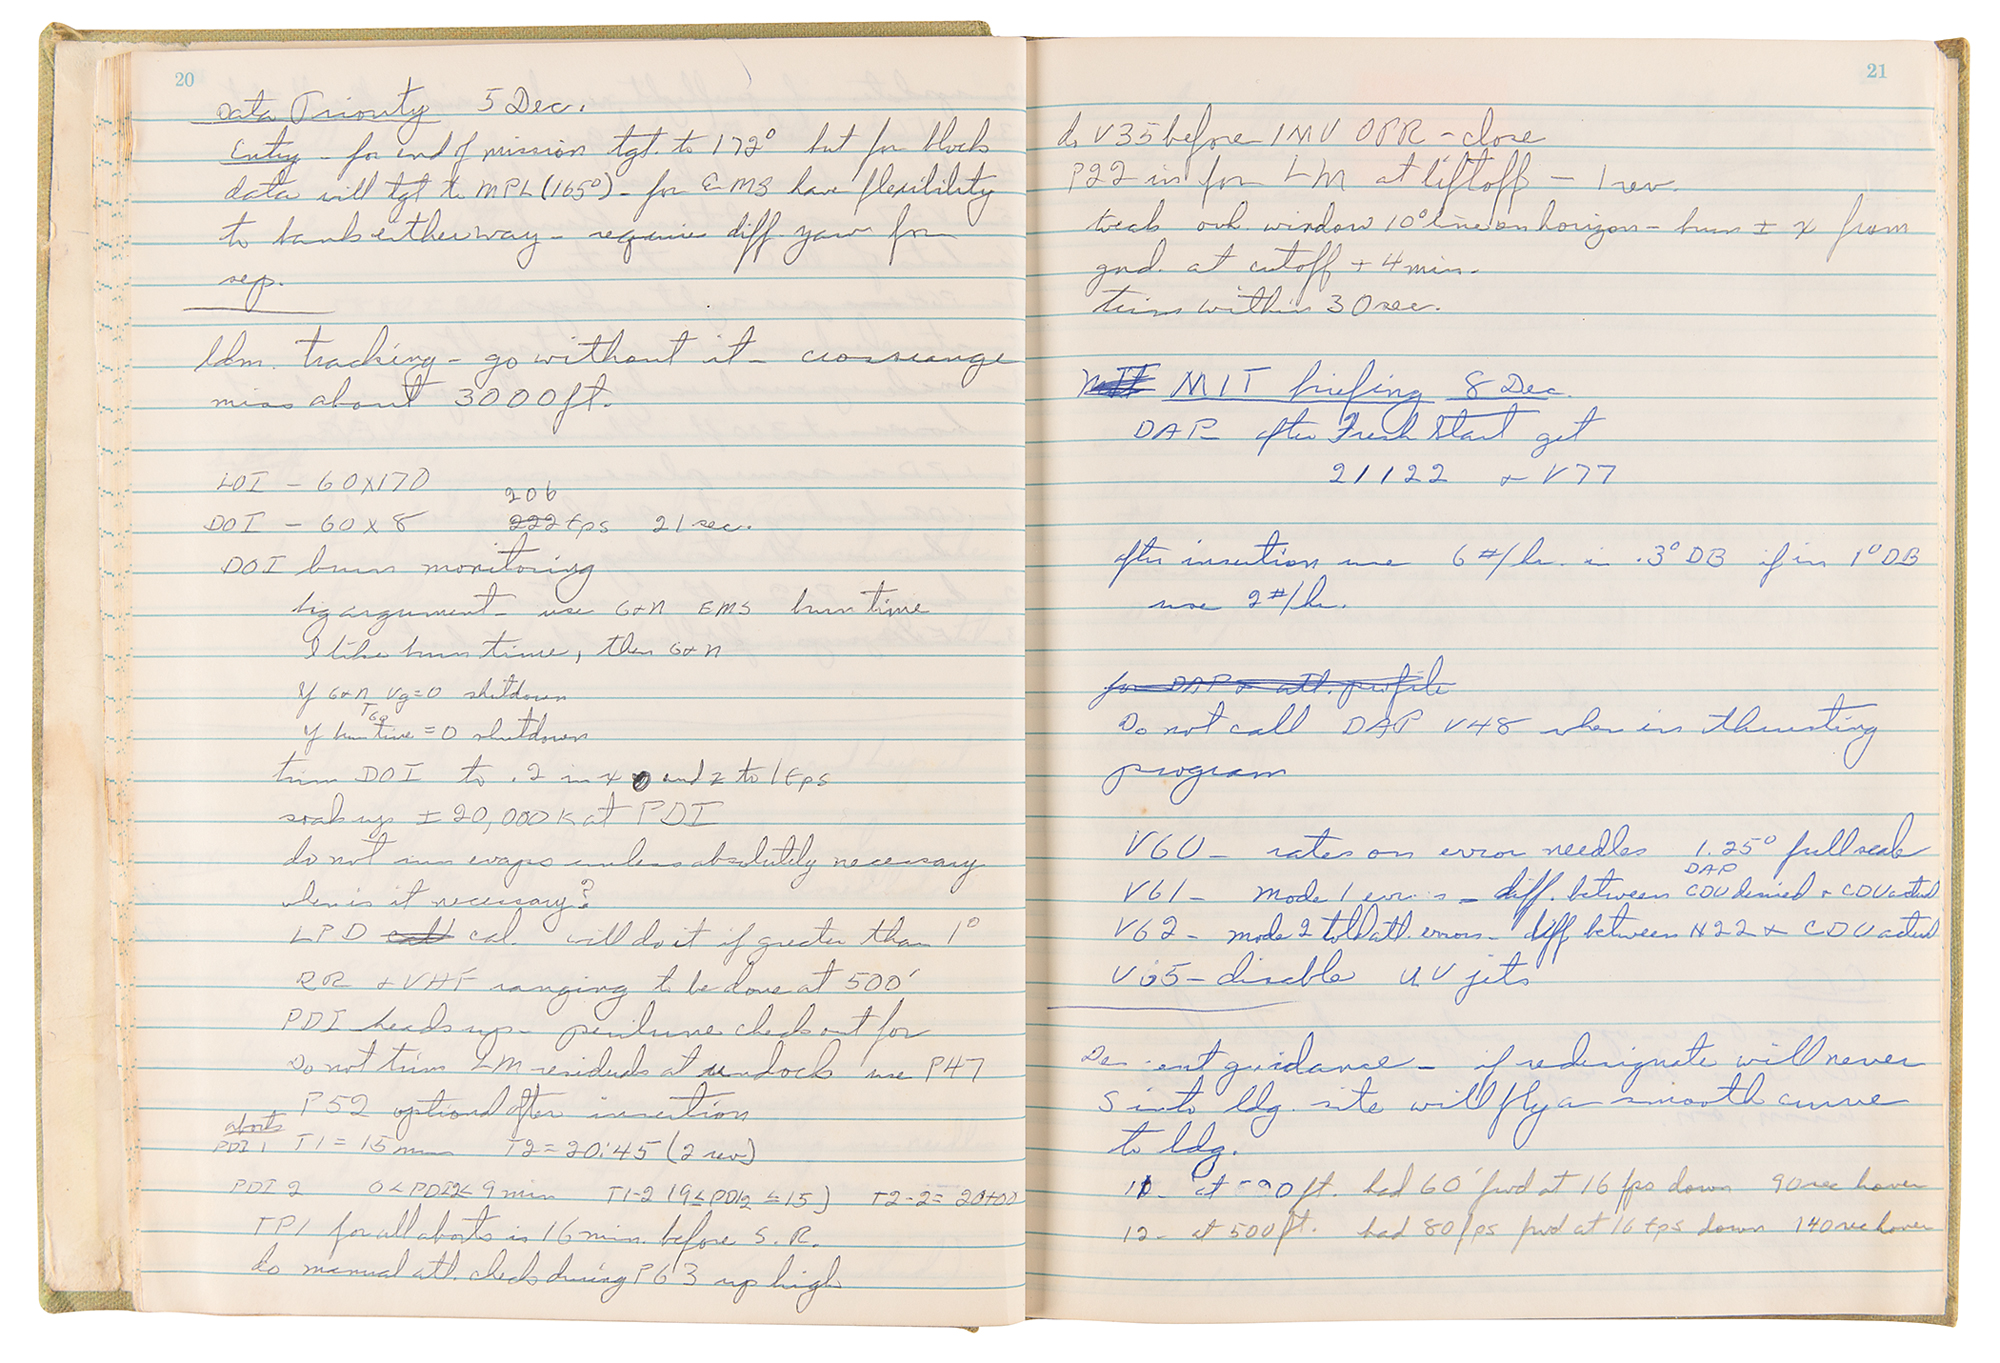 20
Data Priority 5 Dec.
Entry - for end of mission tgt. to 172° but for block
data will tgt to MPL (165°) - for EMS have flexibility
to bank either way - requires diff yaw for
sep.
ldm. tracking - go without it - crossrange
miss about 3000 ft.
LOI - 60X170
206
DOI - 60 X 8 222 fps 21 sec.
DOI burn monitoring
big argument - use G+N EMS burn time
I like burn time, then G+N
If G+N Vg=0 shutdown
TGO
If burn time = 0 shutdown
trim DOI to .2 in x and z to 1 fps
soak up ± 20,000 at PDI
do not run evaps unless absolutely necessary
when is it necessary?
LPD call cal. will do it if greater than 1°
RR + VHF ranging to be done at 500'
PDI heads up - perilune check out for
Do not trim LM residuals at undock use P47
P52 optional after insertion
aborts
PDI 1 T1 = 15 min T2 = 20:45 (2 rev)
PDI 2 0<PDI2<9 min T1-2 (9≤PDI2≤15) T2-2 = 20+00
TPI for all aborts is 16 min. before S.R.
do manual att. check during P63 up high
21
do V35 before IMU OPR - close
P22 in for LM at liftoff - 1 rev.
window 10° line on horizon - burn ± x from
gnd. at cutoff + 4 min.
trim within 30 sec.
MIT MIT briefing 8 Dec.
DAP after Fresh Start get
21122 + V77
after insertion use 6 #/hr. in .3° DB if in 1° DB
use 2 #/hr.
for DAP + att. profile
Do not call DAP V48 when in thrusting
program
V60 - rates on error needles 1.25° full scale
DAP
V61 - mode 1 errors - diff. between CDU desired + CDU actual
V62 - mode 2 total att. errors - diff between N22 + CDU actual
V65 - disable U,V jets
Descent guidance - if redesignate will never
S into ldg. site will fly a smooth curve
to ldg.
11 - at ft. had 60' fwd at 16 fps down 90 sec hover
12 - at 500 ft. had 80 fps fwd at 16 fps down 140 sec hover